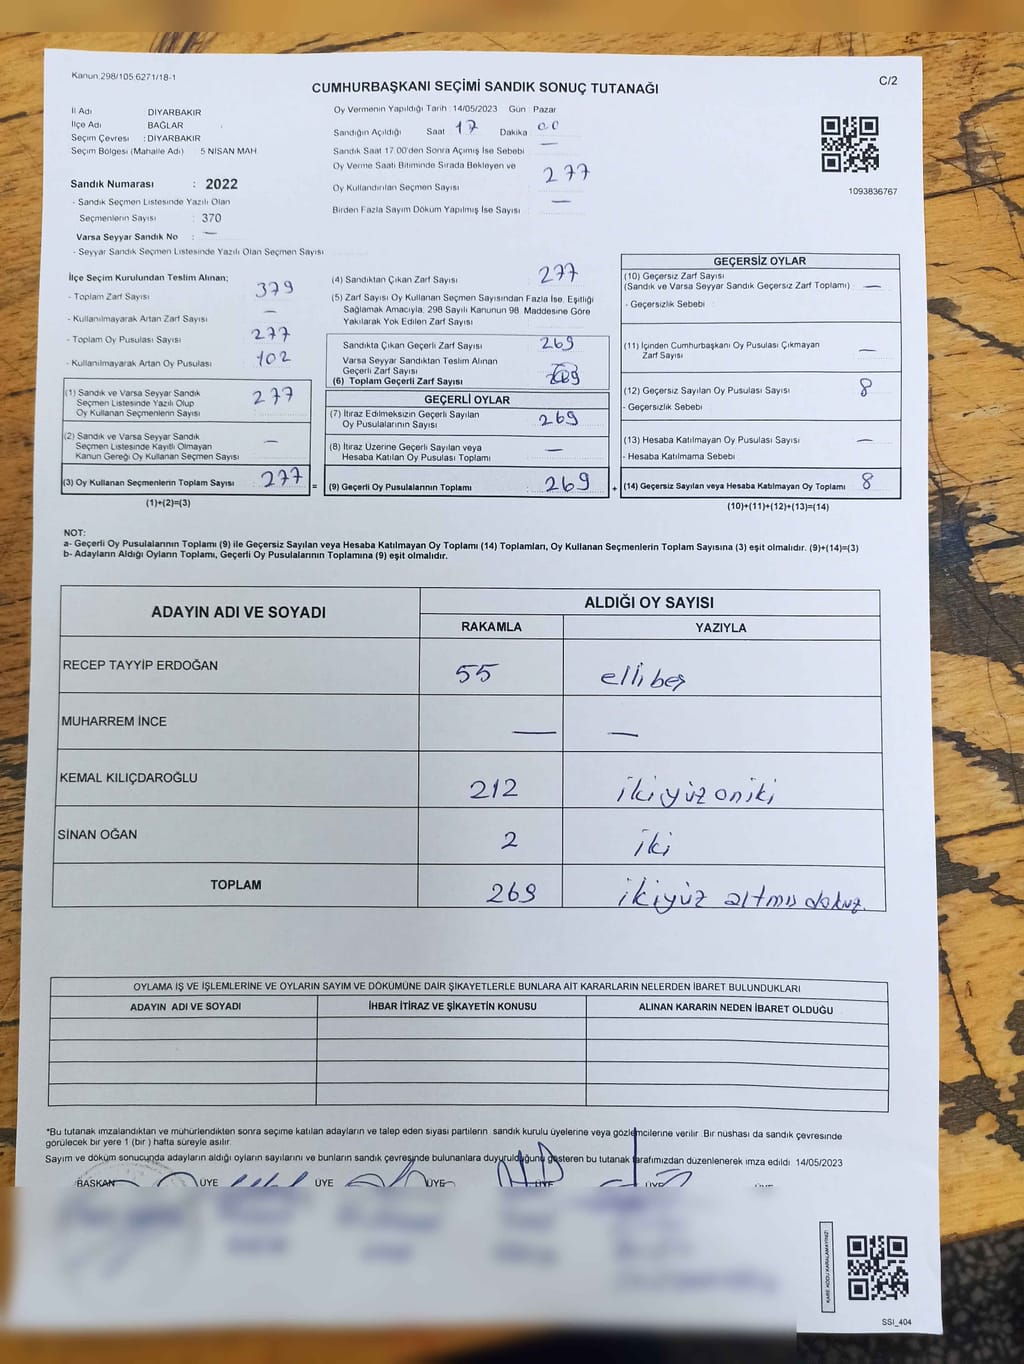 Kanun.298/105.6271/18-1
C/2
CUMHURBAŞKANI SEÇİMİ SANDIK SONUÇ TUTANAĞI
İl Adı DİYARBAKIR
İlçe Adı BAĞLAR
Seçim Çevresi : DİYARBAKIR
Seçim Bölgesi (Mahalle Adı) 5 NİSAN MAH
Sandık Numarası : 2022
- Sandık Seçmen Listesinde Yazılı Olan
Seçmenlerin Sayısı : 370
Varsa Seyyar Sandık No : —
- Seyyar Sandık Seçmen Listesinde Yazılı Olan Seçmen Sayısı
Oy Vermenin Yapıldığı Tarih : 14/05/2023 Gün Pazar
Sandığın Açıldığı Saat 17 Dakika 00
Sandık Saat 17.00'den Sonra Açımış İse Sebebi —
Oy Verme Saati Bitiminde Sırada Bekleyen ve
Oy Kullandırılan Seçmen Sayısı 277
Birden Fazla Sayım Döküm Yapılmış İse Sayısı —
1093836767
İlçe Seçim Kurulundan Teslim Alınan;
- Toplam Zarf Sayısı 379
- Kullanılmayarak Artan Zarf Sayısı —
- Toplam Oy Pusulası Sayısı 277
- Kullanılmayarak Artan Oy Pusulası 102
(1) Sandık ve Varsa Seyyar Sandık
Seçmen Listesinde Yazılı Olup
Oy Kullanan Seçmenlerin Sayısı 277
(2) Sandık ve Varsa Seyyar Sandık
Seçmen Listesinde Kayıtlı Olmayan
Kanun Gereği Oy Kullanan Seçmen Sayısı —
(3) Oy Kullanan Seçmenlerin Toplam Sayısı : 277
(1)+(2)=(3)
(4) Sandıktan Çıkan Zarf Sayısı 277
(5) Zarf Sayısı Oy Kullanan Seçmen Sayısından Fazla İse, Eşitliği
Sağlamak Amacıyla, 298 Sayılı Kanunun 98. Maddesine Göre
Yakılarak Yok Edilen Zarf Sayısı
Sandıkta Çıkan Geçerli Zarf Sayısı 269
Varsa Seyyar Sandıktan Teslim Alınan
Geçerli Zarf Sayısı
(6) Toplam Geçerli Zarf Sayısı 269
GEÇERLİ OYLAR
(7) İtiraz Edilmeksizin Geçerli Sayılan
Oy Pusulalarının Sayısı 269
(8) İtiraz Üzerine Geçerli Sayılan veya
Hesaba Katılan Oy Pusulası Toplamı —
= (9) Geçerli Oy Pusulalarının Toplamı : 269
GEÇERSİZ OYLAR
(10) Geçersiz Zarf Sayısı
(Sandık ve Varsa Seyyar Sandık Geçersiz Zarf Toplamı) —
- Geçersizlik Sebebi
(11) İçinden Cumhurbaşkanı Oy Pusulası Çıkmayan
Zarf Sayısı —
(12) Geçersiz Sayılan Oy Pusulası Sayısı 8
- Geçersizlik Sebebi
(13) Hesaba Katılmayan Oy Pusulası Sayısı —
- Hesaba Katılmama Sebebi
+ (14) Geçersiz Sayılan veya Hesaba Katılmayan Oy Toplamı 8
(10)+(11)+(12)+(13)=(14)
NOT:
a- Geçerli Oy Pusulalarının Toplamı (9) ile Geçersiz Sayılan veya Hesaba Katılmayan Oy Toplamı (14) Toplamları, Oy Kullanan Seçmenlerin Toplam Sayısına (3) eşit olmalıdır. (9)+(14)=(3)
b- Adayların Aldığı Oyların Toplamı, Geçerli Oy Pusulalarının Toplamına (9) eşit olmalıdır.
ADAYIN ADI VE SOYADI
ALDIĞI OY SAYISI
RAKAMLA YAZIYLA
RECEP TAYYİP ERDOĞAN 55 elli beş
MUHARREM İNCE — —
KEMAL KILIÇDAROĞLU 212 ikiyüz oniki
SİNAN OĞAN 2 iki
TOPLAM 269 ikiyüz altmıs dokuz
OYLAMA İŞ VE İŞLEMLERİNE VE OYLARIN SAYIM VE DÖKÜMÜNE DAİR ŞİKAYETLERLE BUNLARA AİT KARARLARIN NELERDEN İBARET BULUNDUKLARI
ADAYIN ADI VE SOYADI İHBAR İTİRAZ VE ŞİKAYETİN KONUSU ALINAN KARARIN NEDEN İBARET OLDUĞU
*Bu tutanak imzalandıktan ve mühürlendikten sonra seçime katılan adayların ve talep eden siyasi partilerin sandık kurulu üyelerine veya gözlemcilerine verilir. Bir nüshası da sandık çevresinde
görülecek bir yere 1 (bir ) hafta süreyle asılır.
Sayım ve döküm sonucunda adayların aldığı oyların sayılarını ve bunların sandık çevresinde bulunanlara duyurulduğunu gösteren bu tutanak tarafımızdan düzenlenerek imza edildi. 14/05/2023
BAŞKAN ÜYE ÜYE ÜYE ÜYE ÜYE
KARE KODU KARALAMAYINIZ!
SSI_404